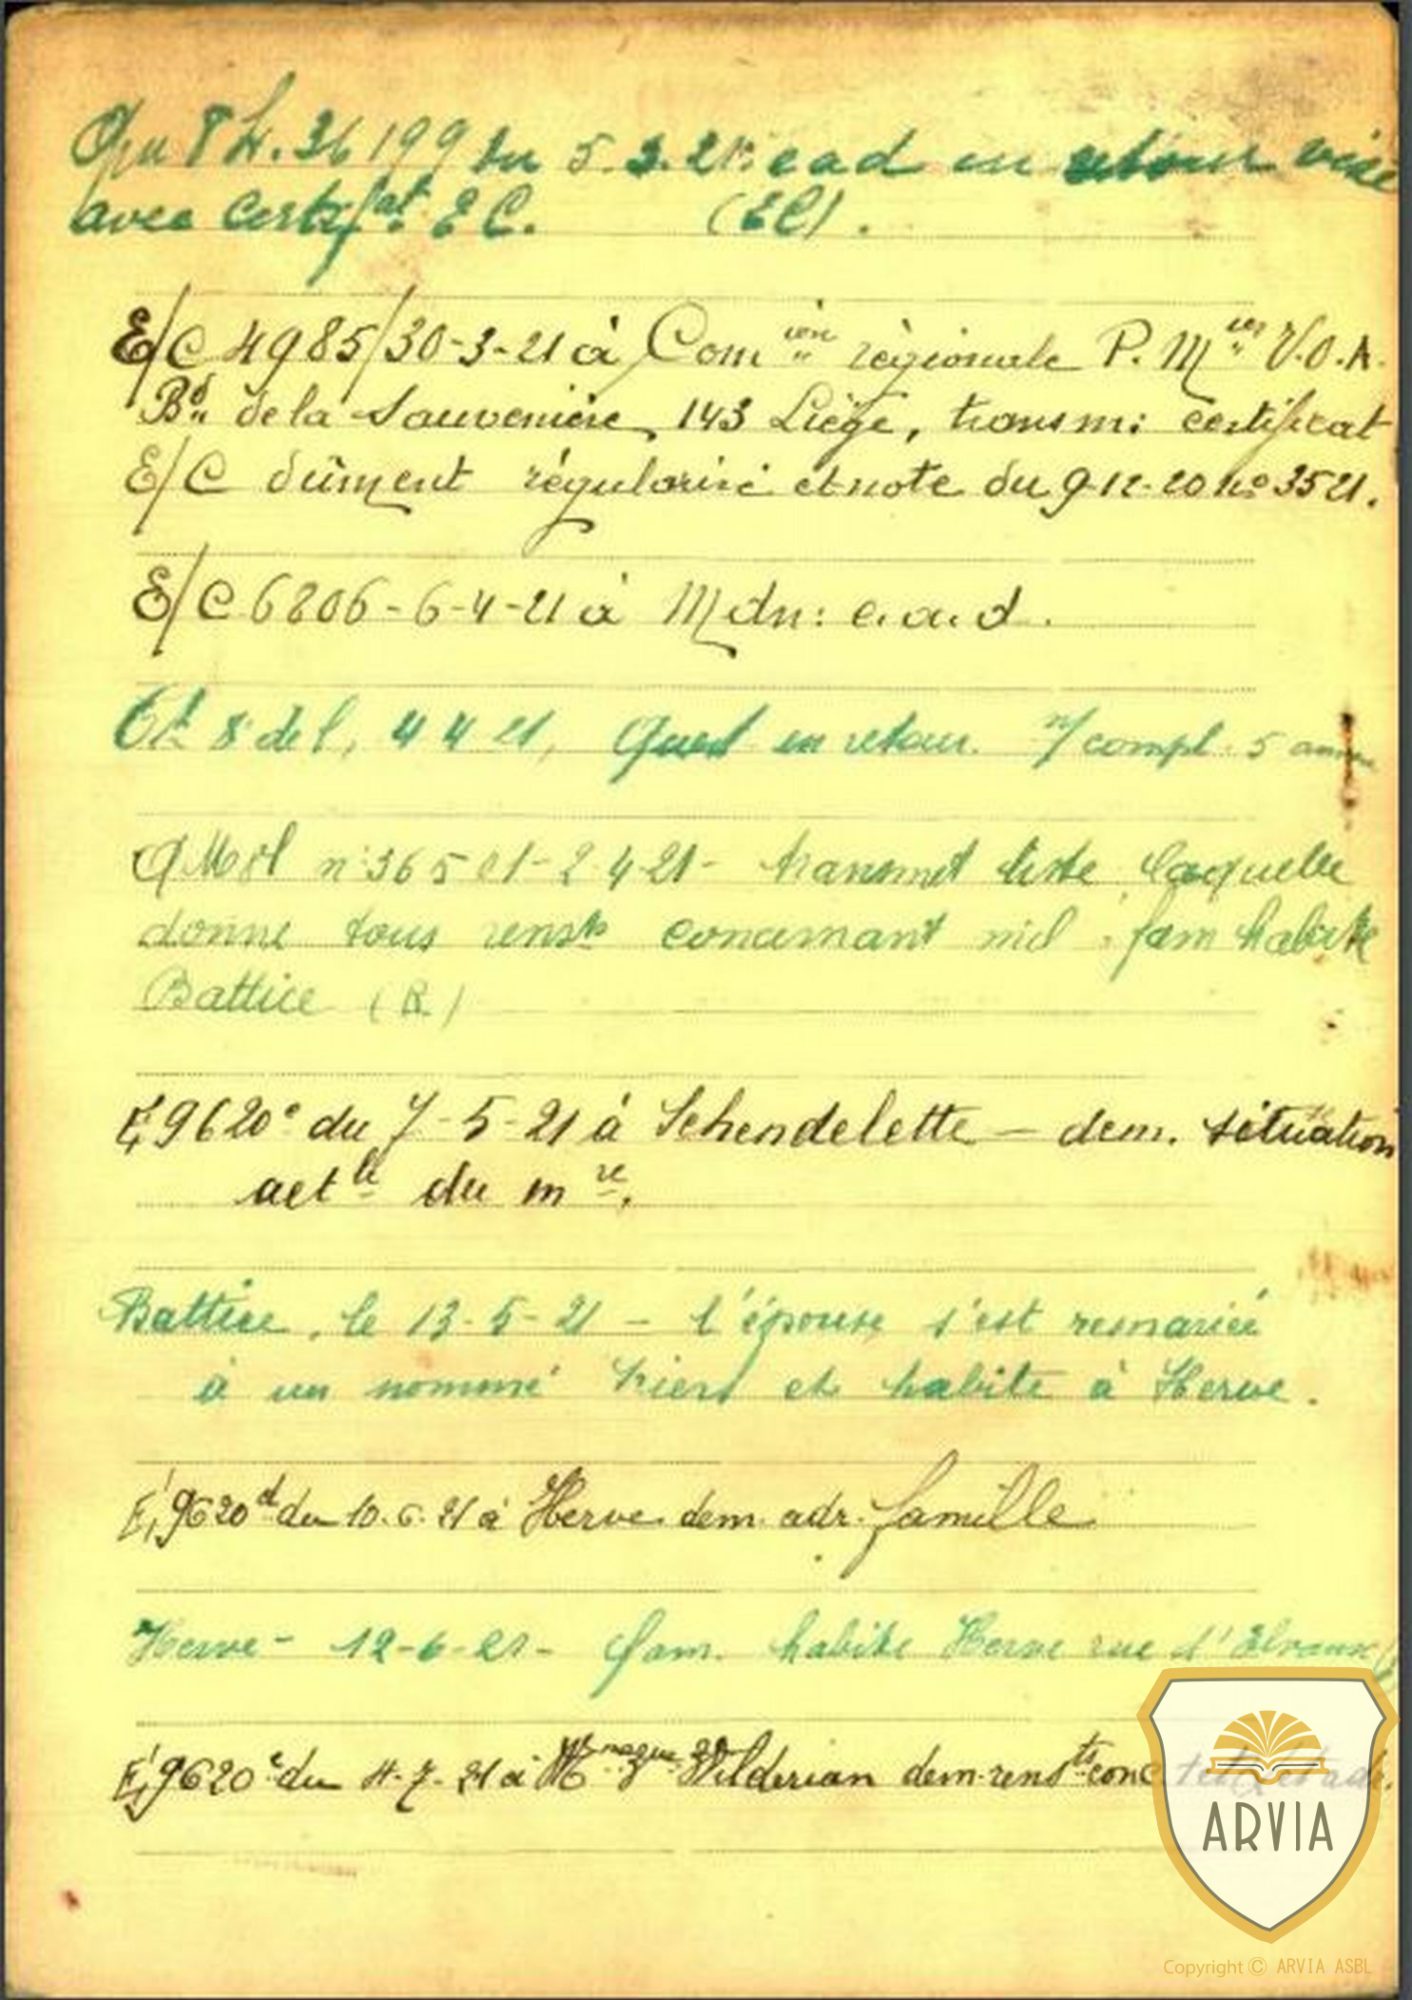 36199 du 5.3.21: ead en retour visé
avec Certifat E C. (EC).
E/C 4985/30-3-21 à Comion régionale P. Mres V.O.A.
Bd de la Sauvenière, 143 Liège, transm: certificat
E/C dûment régularisé et note du 9-12-20 no 3521.
E/C 6206-6-4-21 à Mdn: e.a.d.
8 del, 4 4 21, Quest en retour. n/ compl. 5
n° 365 01-2-4-21- transmet liste laquelle
donne tous rensts concernant mil: fam habite
Battice (R)
E, 9620e du 7-5-21 à Schendelette – dem. situation
actle du mre.
Battice, le 13-5-21 – l'épouse s'est remariée
à un nommé et habite à Herve.
E, 9620d du 10.6.21 à Herve dem. adr. famille
Herve - 12-6-21- fam. habite Herve rue d'
E, 9620e du 4-7-21 à Wilderian dem. rensts conc. adr.
ARVIA
Copyright © ARVIA ASBL